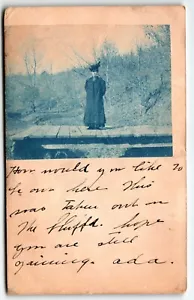 How would you like to
be over here. This
was taken out on
the Bluffs. hope
you are still
gaining. Ada.